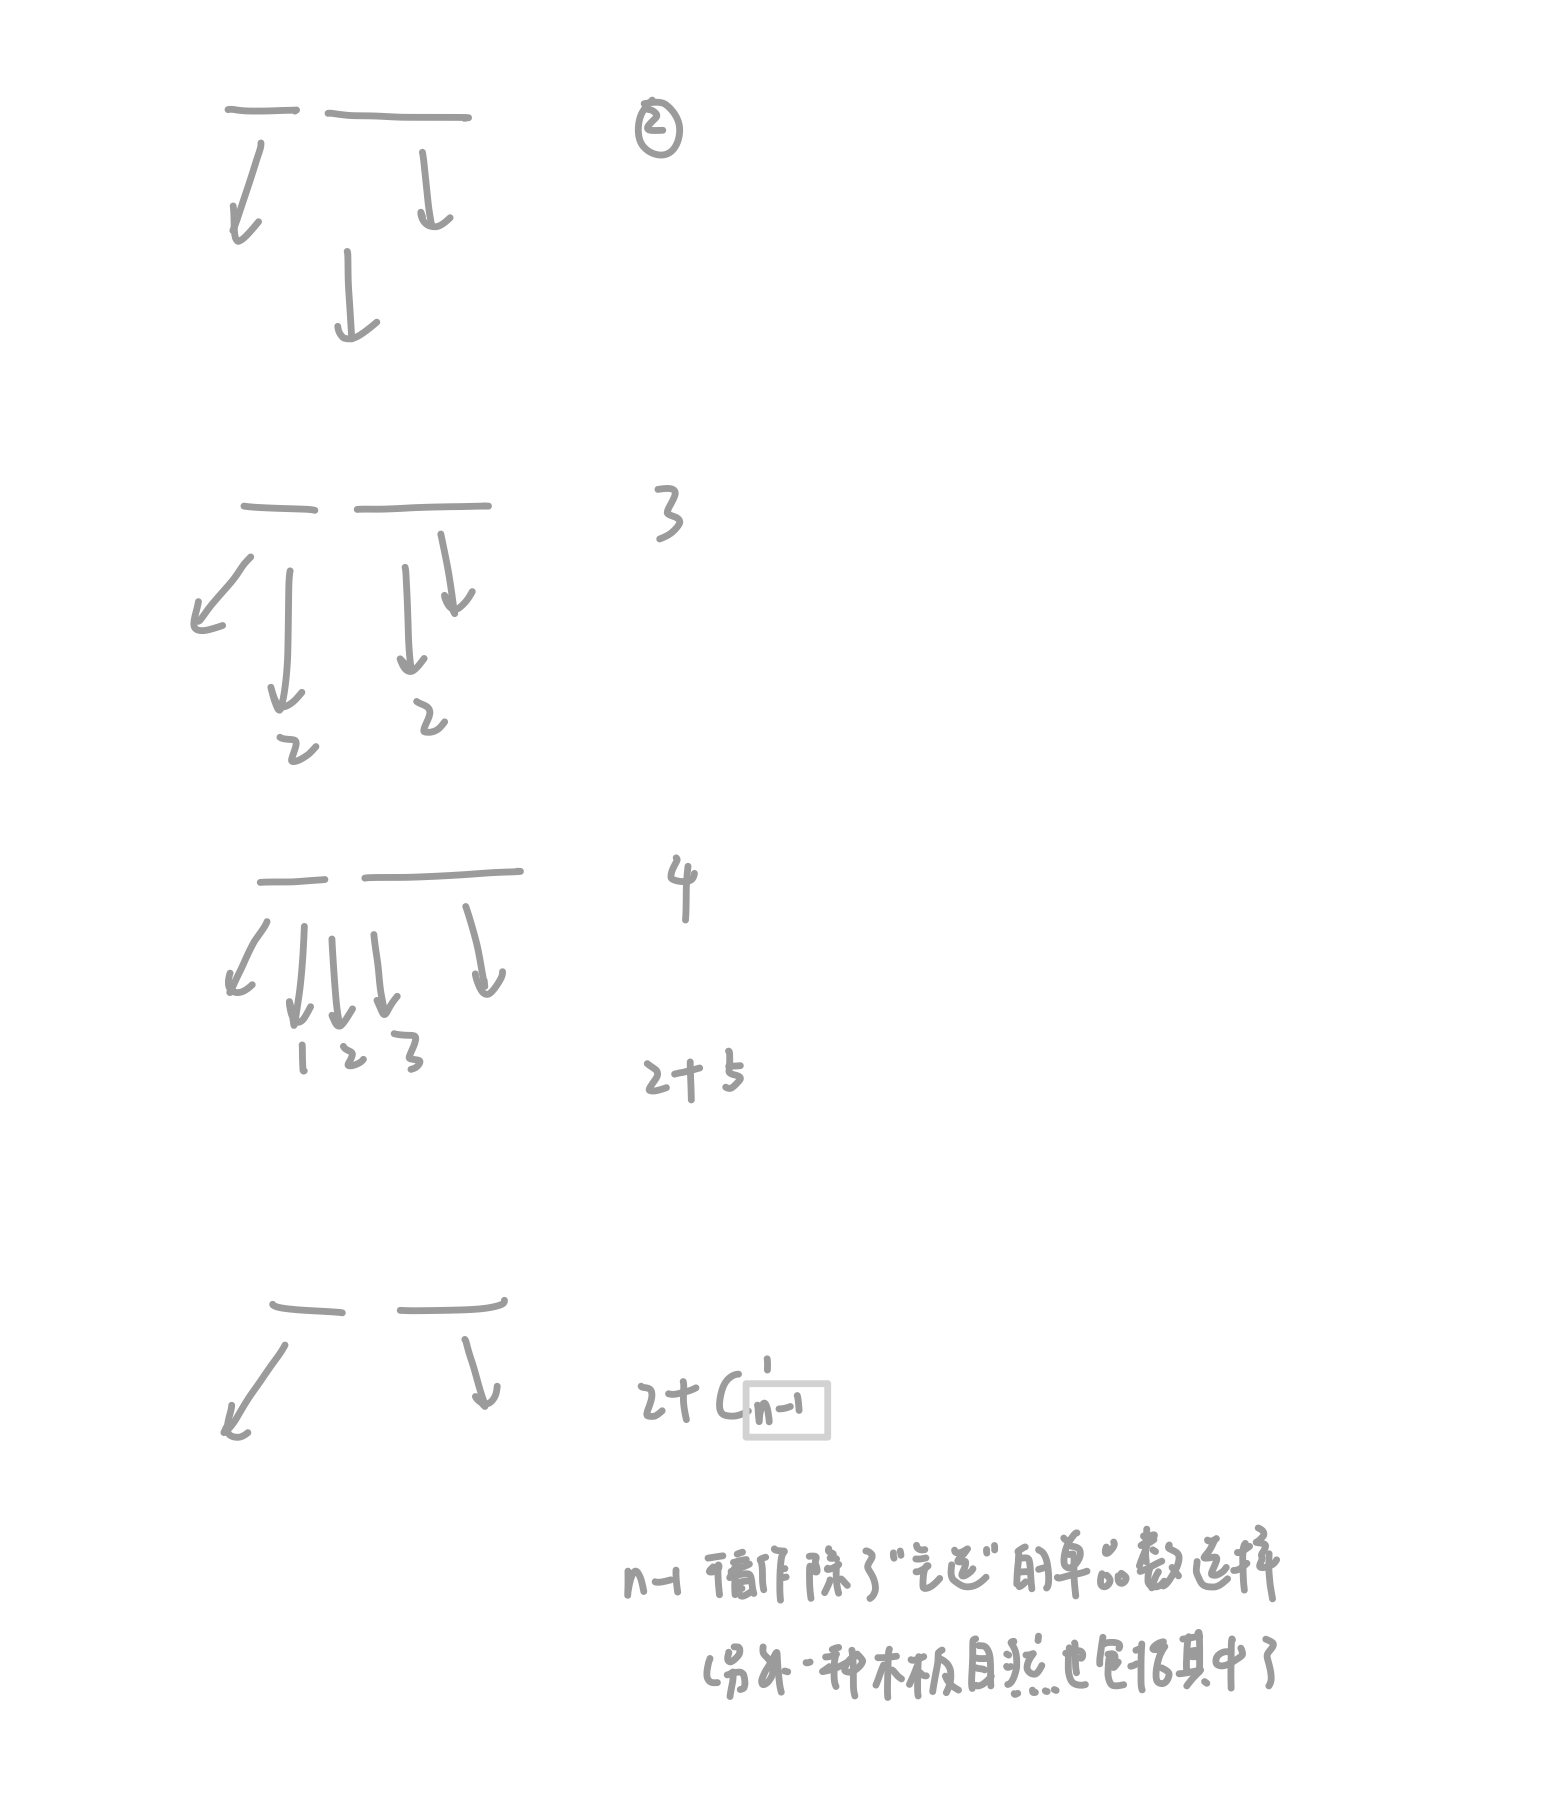 ②
3
2 2
4
1 2 3
2+5
2+C¹n-1
n-1 看作除了“全选”的单品数选择
(另外一种木板自然也包括其中了